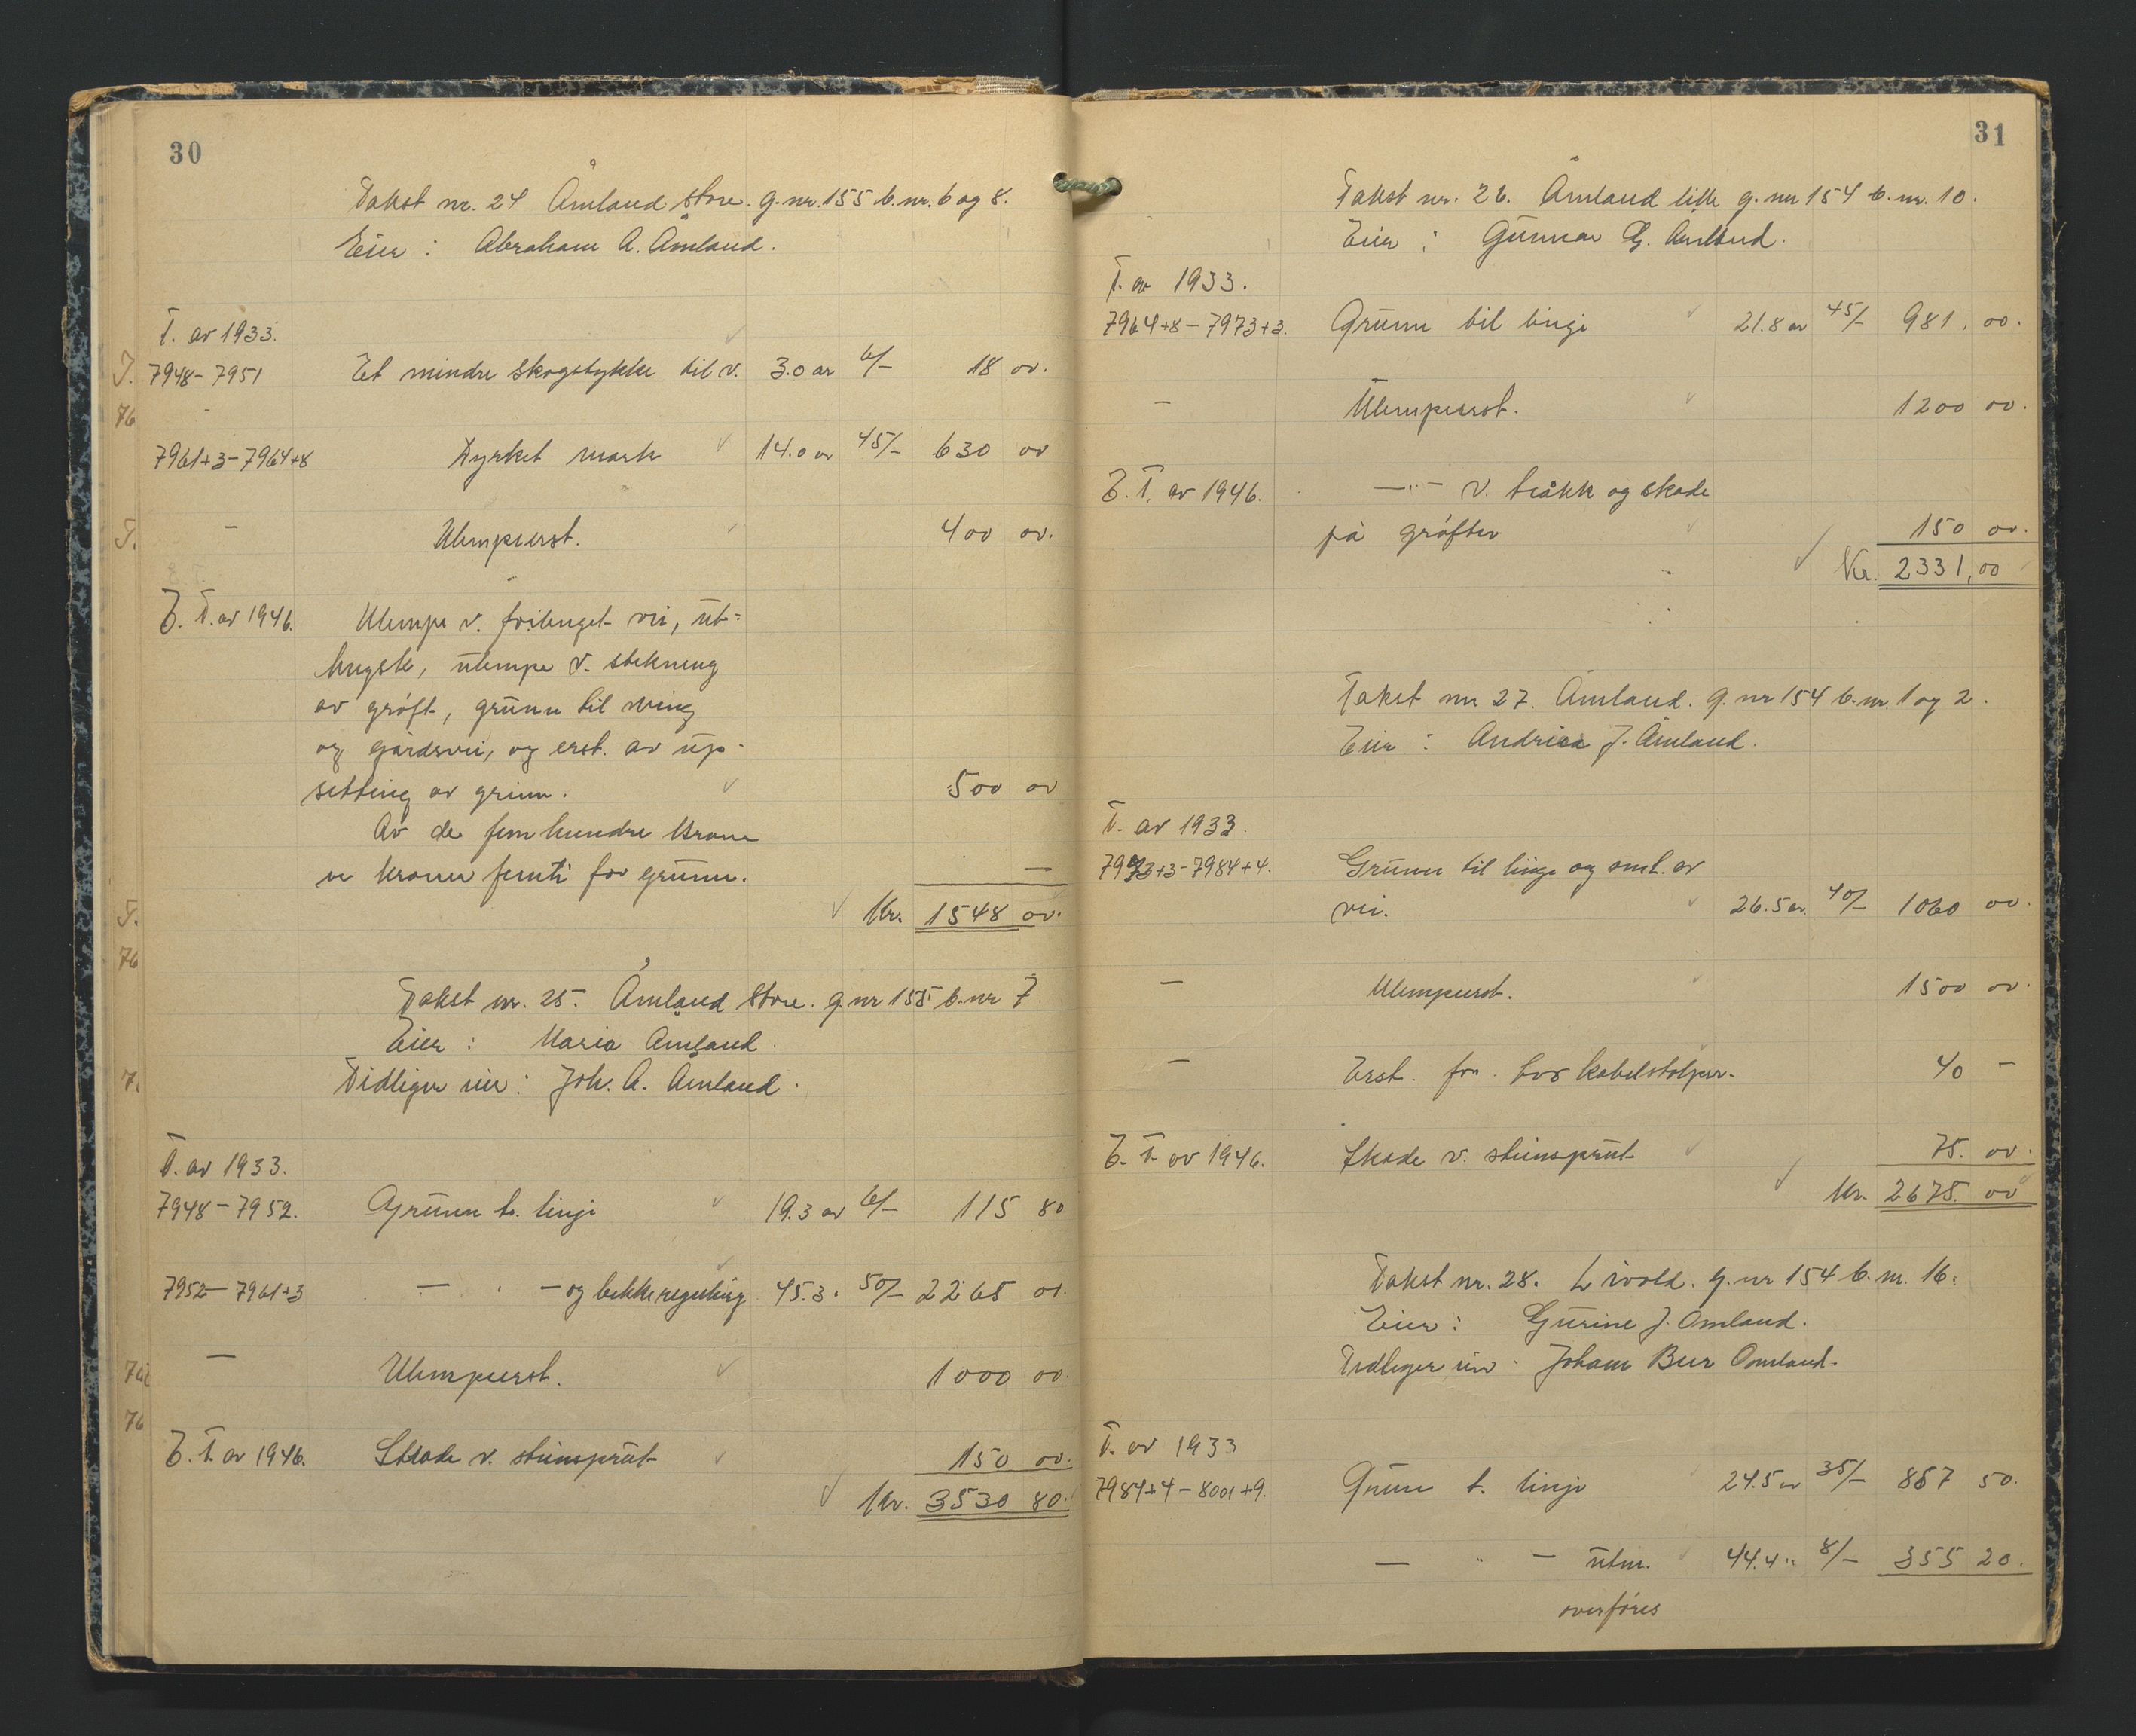 30
Takst nr. 24 Åmland store. g.nr. 155 b.nr. 6 og 8.
Eier : Abraham A. Åmland.
T. av 1933.
7948 - 7951 Et mindre skogstykke til v. 3.0 ar 6/- 18 00.
7961+3 - 7964+8 Dyrket mark 14.0 ar 45/- 630 00
- Ulempeerst. 400 00.
T. av 1946. Ulempe v. forlenget vei, ut-
hugste, ulempe v. stekning
av grøft, grunn til sving
og gårdsvei, og erst. av up-
setting av grinn. 500 00
Av de fem hundre krone
er kroner femti for grunn. —
Kr. 1548 00.
Takst nr. 25. Åmland Store. g.nr 155 b.nr 7.
Eier : Maria Åmland.
Tidligere eier : Joh. A. Åmland.
T. av 1933.
7948 - 7952. Grunn t. linje 19.3 ar 6/- 115 80
7952 - 7961+3 — " — og bekkeregulering 45.3 " 50/- 2265 00.
— Ulempeerst. 1000 00.
T. av 1946. Skade v. steinsprut 150 00.
Kr. 3530 80.
31
Takst nr. 26. Åmland litle g.nr 154 b.nr. 10.
Eier : Gunnar G. Åmland.
T. av 1933.
7964+8 - 7973+3. Grunn til linje 21.8 ar 45/- 981.00.
— Ulempeerst. 1200 00.
T. av 1946. — " — v. tråkk og skade
på grøfter 150 00.
Kr. 2331,00
Takst nr 27. Åmland. g.nr 154 b.nr. 1 og 2.
Eier : Andrea J. Åmland.
T. av 1933.
7973+3 - 7984+4. Grunn til linje og oml. av
vei. 26.5 ar. 40/- 1060 00.
— Ulempeerst. 1500 00.
— Erst. for tos kabelstolper. 40 —
T. av 1946. Skade v. steinsprut 75. 00.
Kr. 2675. 00
Takst nr. 28. Livold. g.nr 154 b.nr. 16.
Eier : Gurine J. Omland.
Tidligere eier : Johann Beer Omland.
T. av 1933
7984+4 - 8001+9. Grunn t. linje 24.5 ar 35/- 857 50.
— " — utm. 44.4 " 8/- 355 20.
overføres